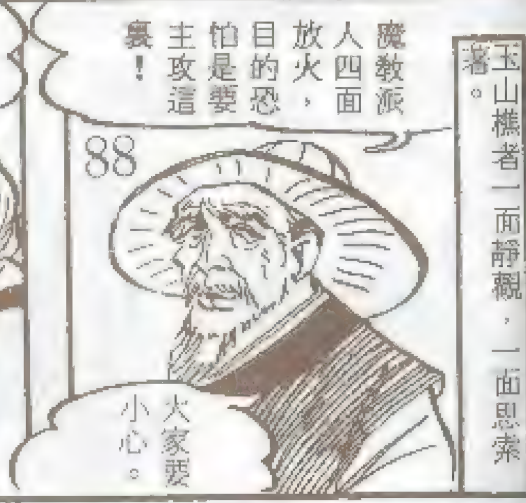 玉山樵者一面靜觀，一面思索
著。
魔教派
人四面
放火，
目的恐
怕是要
主攻這
裏！
88
大家要
小心。